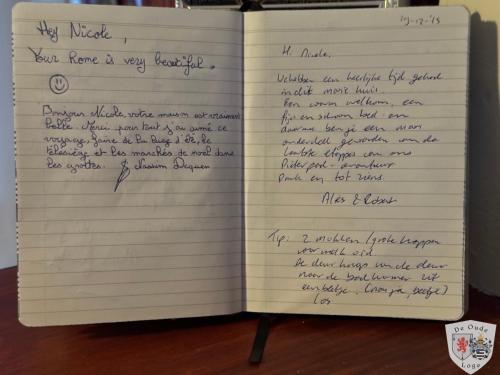 Hey Nicole,
Your home is very beautiful.
Bonjour Nicole, votre maison est vraiment
belle. Merci pour tout j'ai aimé ce
voyage, faire de la luge d'été, le
télésiège et les marchés de noël dans
les grottes. Nassim
19-12-'15
Hi Nicole,
We hebben een heerlijke tijd gehad
in dit mooie huis.
Een warm welkom, een
fijn en schoon bed en
daarmee ben je een mooi
onderdeel geworden van de
laatste etappes van ons
Pieterpad-avontuur
Dank en tot ziens.
& Robert
Tip: 2 mokken/grote koppen
voor melk o.i.d.
De deurknop van de deur
naar de badkamer zit
een beetje (nou ja, beetje)
los
De Oude
Loge